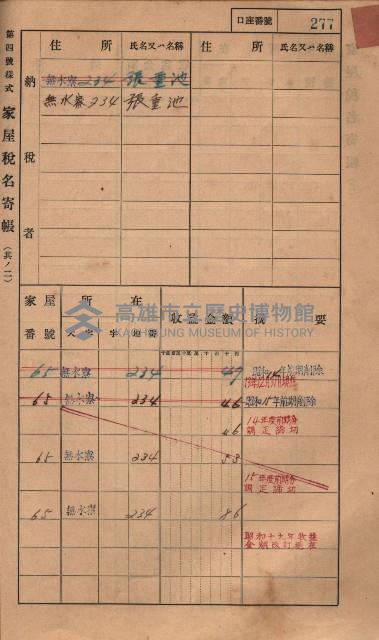 口座番號 277
第四號樣式 家屋稅名寄帳(其ノ二)
納稅者
住所 氏名又ハ名稱 住所 氏名又ハ名稱
無水寮234 張重池
無水寮234 張重池
家屋番號 所在 收益金額 摘要
大字 字 地番
高雄市立歷史博物館
KAOHSIUNG MUSEUM OF HISTORY
65 無水寮 234 49
13年12月31日現在
65 無水寮 234 46 昭和15年前期削除
46 14年度前期分
調定濟切
65 無水寮 234 53
15年度前期分
調定濟切
65 無水寮 234 86
昭和十九年收益
金額改訂